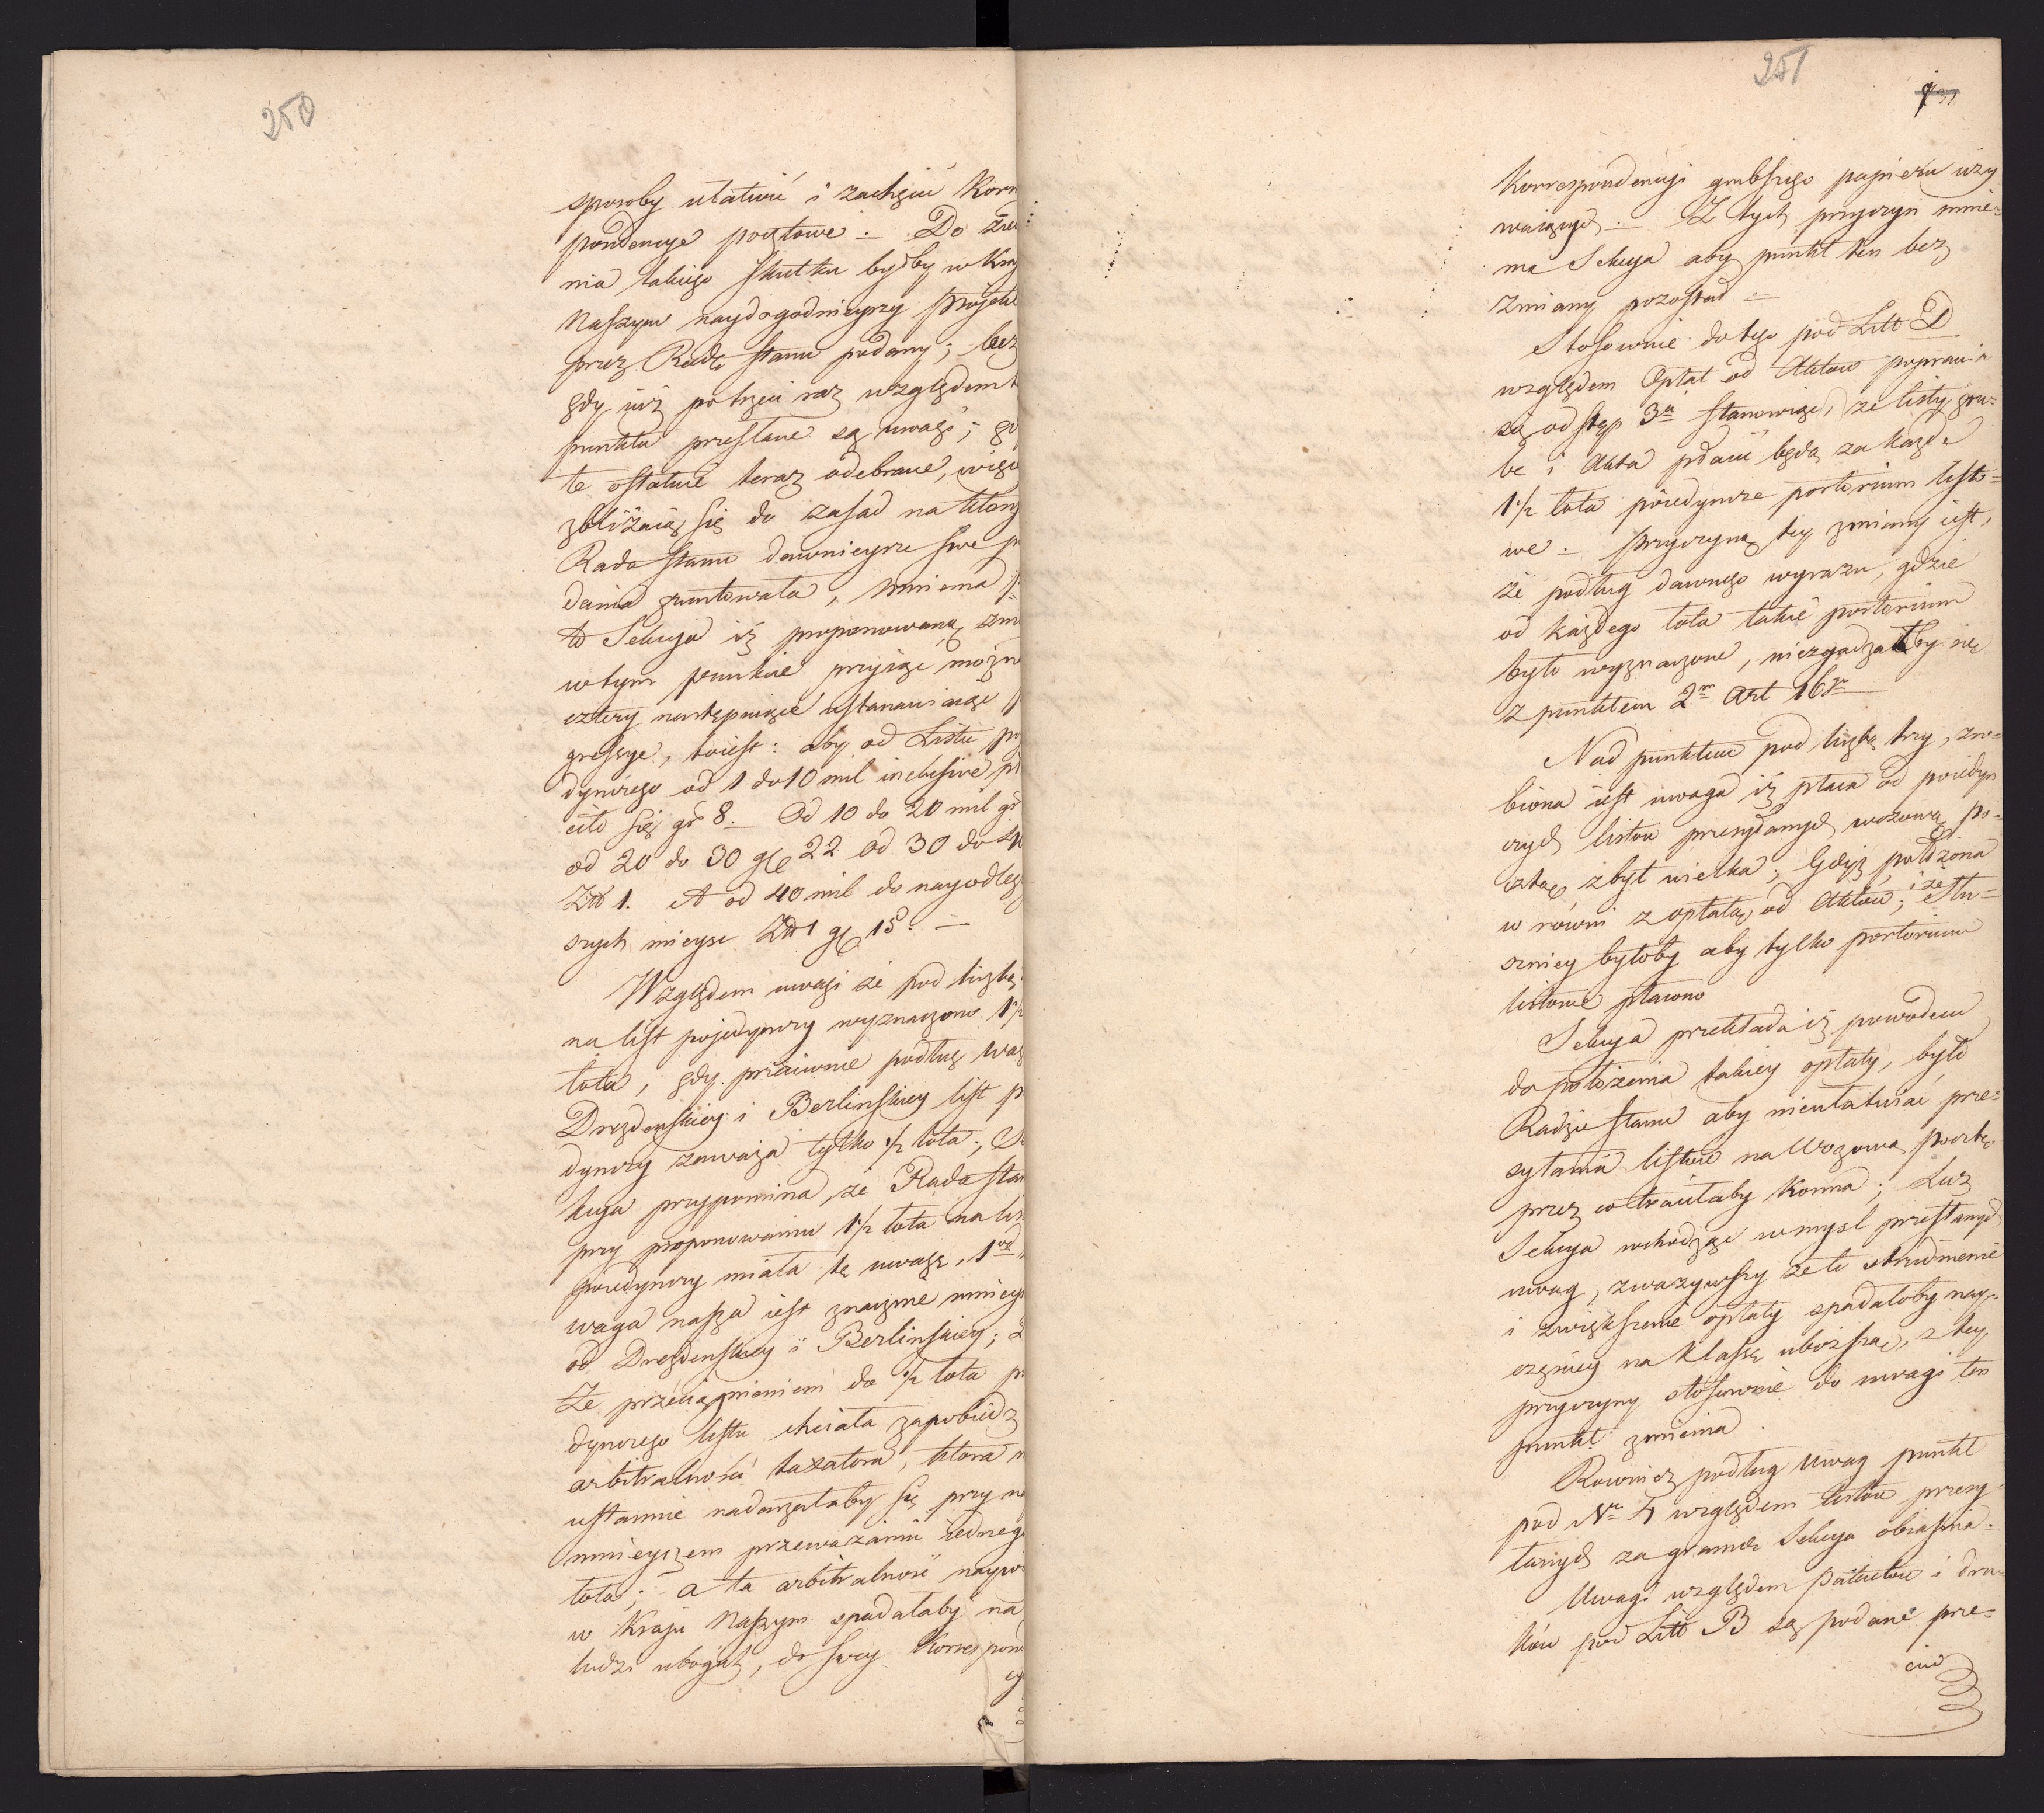 250
sposoby ułatwić i zachęcić Korr
pondencye pocztowe. Do
nia takiego skutku byłby w Kra
Naszym naydogodnieyszy proiekt
przez Radę stanu podany; lecz
gdy iuż po trzeci raz względem t
punktu przesłane są uwagi; g
te ostatnie teraz odebrane, więc
zbliżaią się do zasad na któr
Rada stanu dawnieysze swe p
dania gruntowała, mniema
to Sekcya iż proponowaną zm
w tym punkcie przyiąć możn
cztery następuiące ustanawiaiąc
gressye, toiest: aby od Listu po
dynczego od 1 do 10 mil inclusive pł
ciło się gr 8. Od 10 do 20 mil gr
od 20 do 30 gr 22 od 30 do 4
Zł 1. A od 40 mil do nayodleg
szych mieysc Zł 1 gr 15. —
Względem uwagi że pod liczbą
na list pojedynczy wyznaczono 1½
łóta, gdy przeciwnie podług wag
Drezdeńskiey i Berlińskiey list p
dynczy zaważa tylko ½ łóta; S
kcya przypomina, że Rada stan
przy proponowaniu 1½ łóta na lis
poiedynczy miała tę uwagę, 1od
waga nasza iest znacznie mniey
od Drezdeńskiey i Berlińskiey; 2
Że przeciągnieniem do ½ łóta p
dynczego listu chciała zapobiedz
arbitralności taxatora, która n
ustannie nadarzałaby się przy n
mnieyszem przeważaniu iednego
łóta; a ta arbitralność naywi
w Kraju Naszym spadałaby na
ludzi ubogich, do swey Korrespon
cy
251
Korrespondencyi grubszego papieru uży
waiących. — Z tych przyczyn mnie=
ma Sekcya aby punkt ten bez
zmiany pozostał —
Stosownie do tego pod Litt D
względem Opłat od Aktów poprawia
się odstęp 3ci stanowiąc, że listy gru=
be i Akta płacić będą za każde
1½ łóta poiedyncze portorium listo=
we. — Przyczyną tey zmiany iest,
że podług dawnego wyrazu, gdzie
od każdego łóta takie portorium
było wyznaczone, niezgadzałby się
z punktem 2m Art 16go
Nad punktem pod liczbą trzy, zro=
biona iest uwaga iż płaca od poiedyn
czych listów przesyłanych wozową po=
cztą zbyt wielka; Gdyż położona
w równi z opłatą od Aktów; i że Słu=
szniey byłoby aby tylko portorium
listowe płacono
Sekcya przekłada iż powodem
do położenia takiey opłaty, było
Radzie stanu aby nieułatwiać prze=
syłania listów na Wozową pocztę
przez co traciłaby Konna; Lecz
Sekcya wchodząc w mysl przesłanych
uwag, zważywszy że to utrudnienie
i zwiększenie opłaty spadałoby nay=
częściey na klassę uboższą, z tey
przyczyny stosownie do uwagi ten
punkt zmienia.
Również podług Uwag punkt
pod Nro 4 względem listów przesy
łanych za granicę Sekcya obiasnia.
Uwagi względem Patentów i dru=
ków pod Litt B są podane prze=
ciw